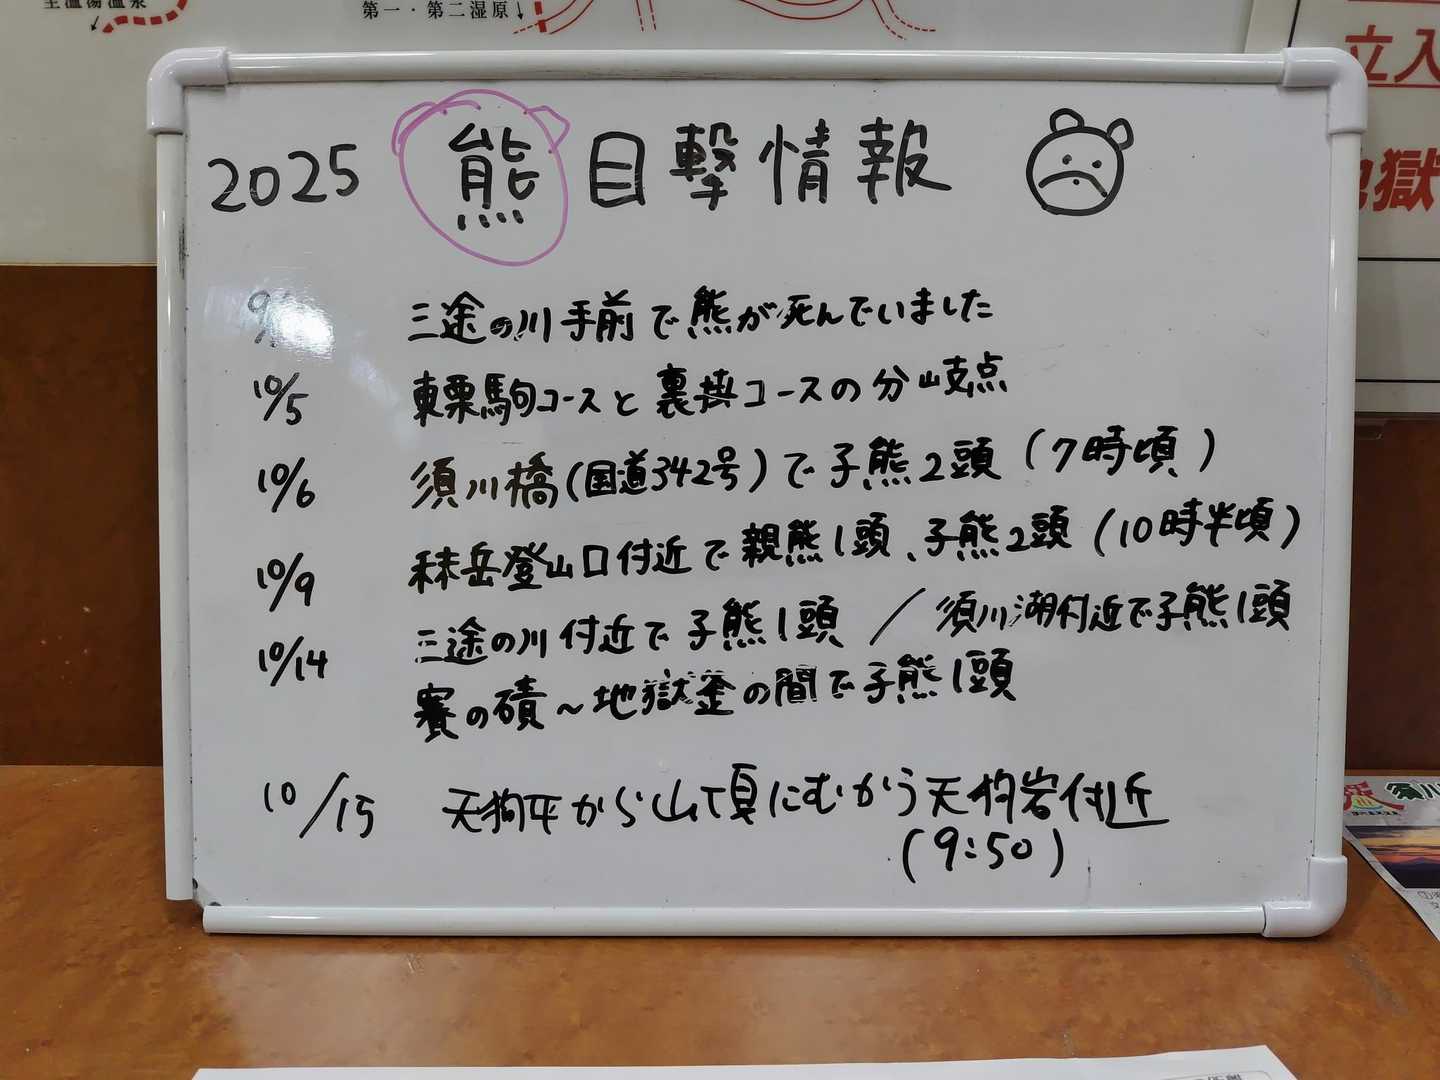 主温湯温泉
第一・第二湿原↓
立入
地獄
2025 熊目撃情報
三途の川手前で熊が死んでいました
10/5 東栗駒コースと裏掛コースの分岐点
10/6 須川橋(国道342号)で子熊2頭(7時頃)
10/9 秣岳登山口付近で親熊1頭、子熊2頭(10時半頃)
10/14 三途の川付近で子熊1頭/須川湖付近で子熊1頭
賽の磧~地獄釜の間で子熊1頭
10/15 天狗平から山頂にむかう天狗岩付近
(9:50)